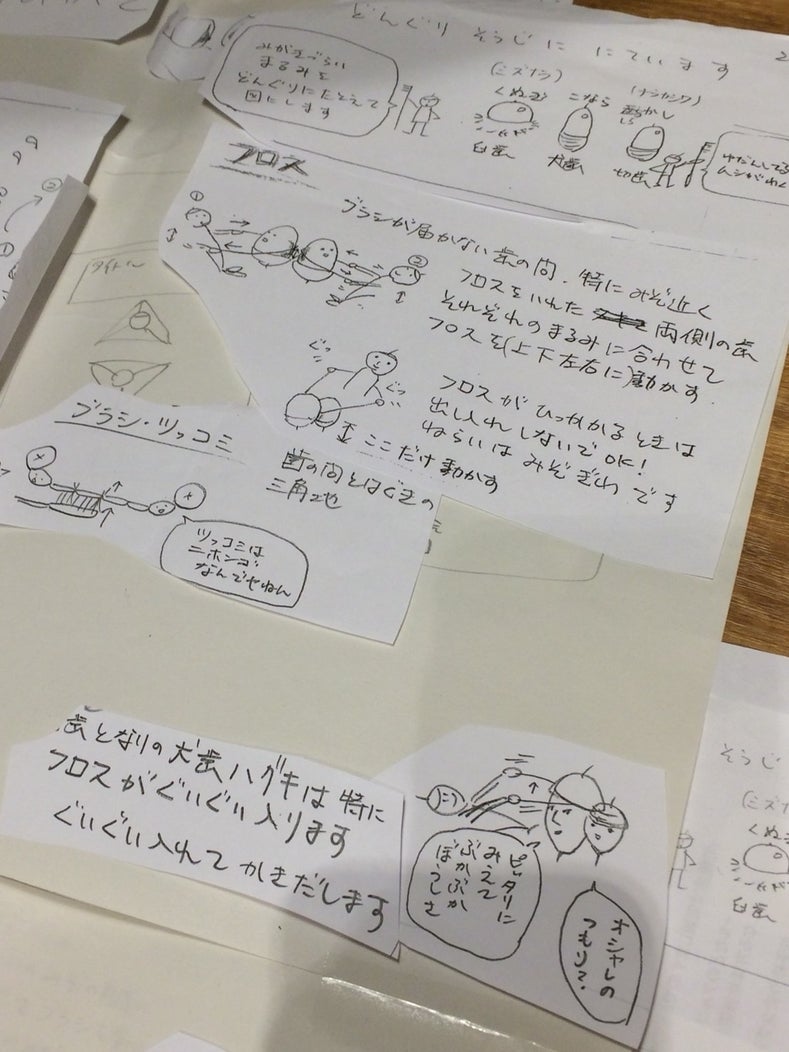 どんぐり そうじ に にています
みがきづらい
まるみを
どんぐりにたとえて
図にします
(ミズナラ)
くぬぎ
臼歯
こなら
犬歯
しらかし
切歯
ゆだんしてる
ムシがわく
フロス
①
②
ブラシが届かない歯の間、特にみぞ近く
フロスをいれた両側の歯
それぞれのまるみに合わせて
フロスを(上下左右に)動かす
ぐっ
ぐっ
ここだけ動かす
フロスがひっかかるときは
出し入れしないでOK!
ねらいはみぞぎわです
タイトル
①
②
ブラシ・ツッコミ
歯の間とはぐきの
三角地
ツッコミは
ニホンゴ
なんでやねん
歯となりの犬歯ハグキは特に
フロスがぐいぐい入ります
ぐいぐい入れてかきだします
ピッタリに
みえて
ぶかぶか
ぼうし
オシャレの
つもり?
そうじ
(ミズナ
くぬぎ
臼歯